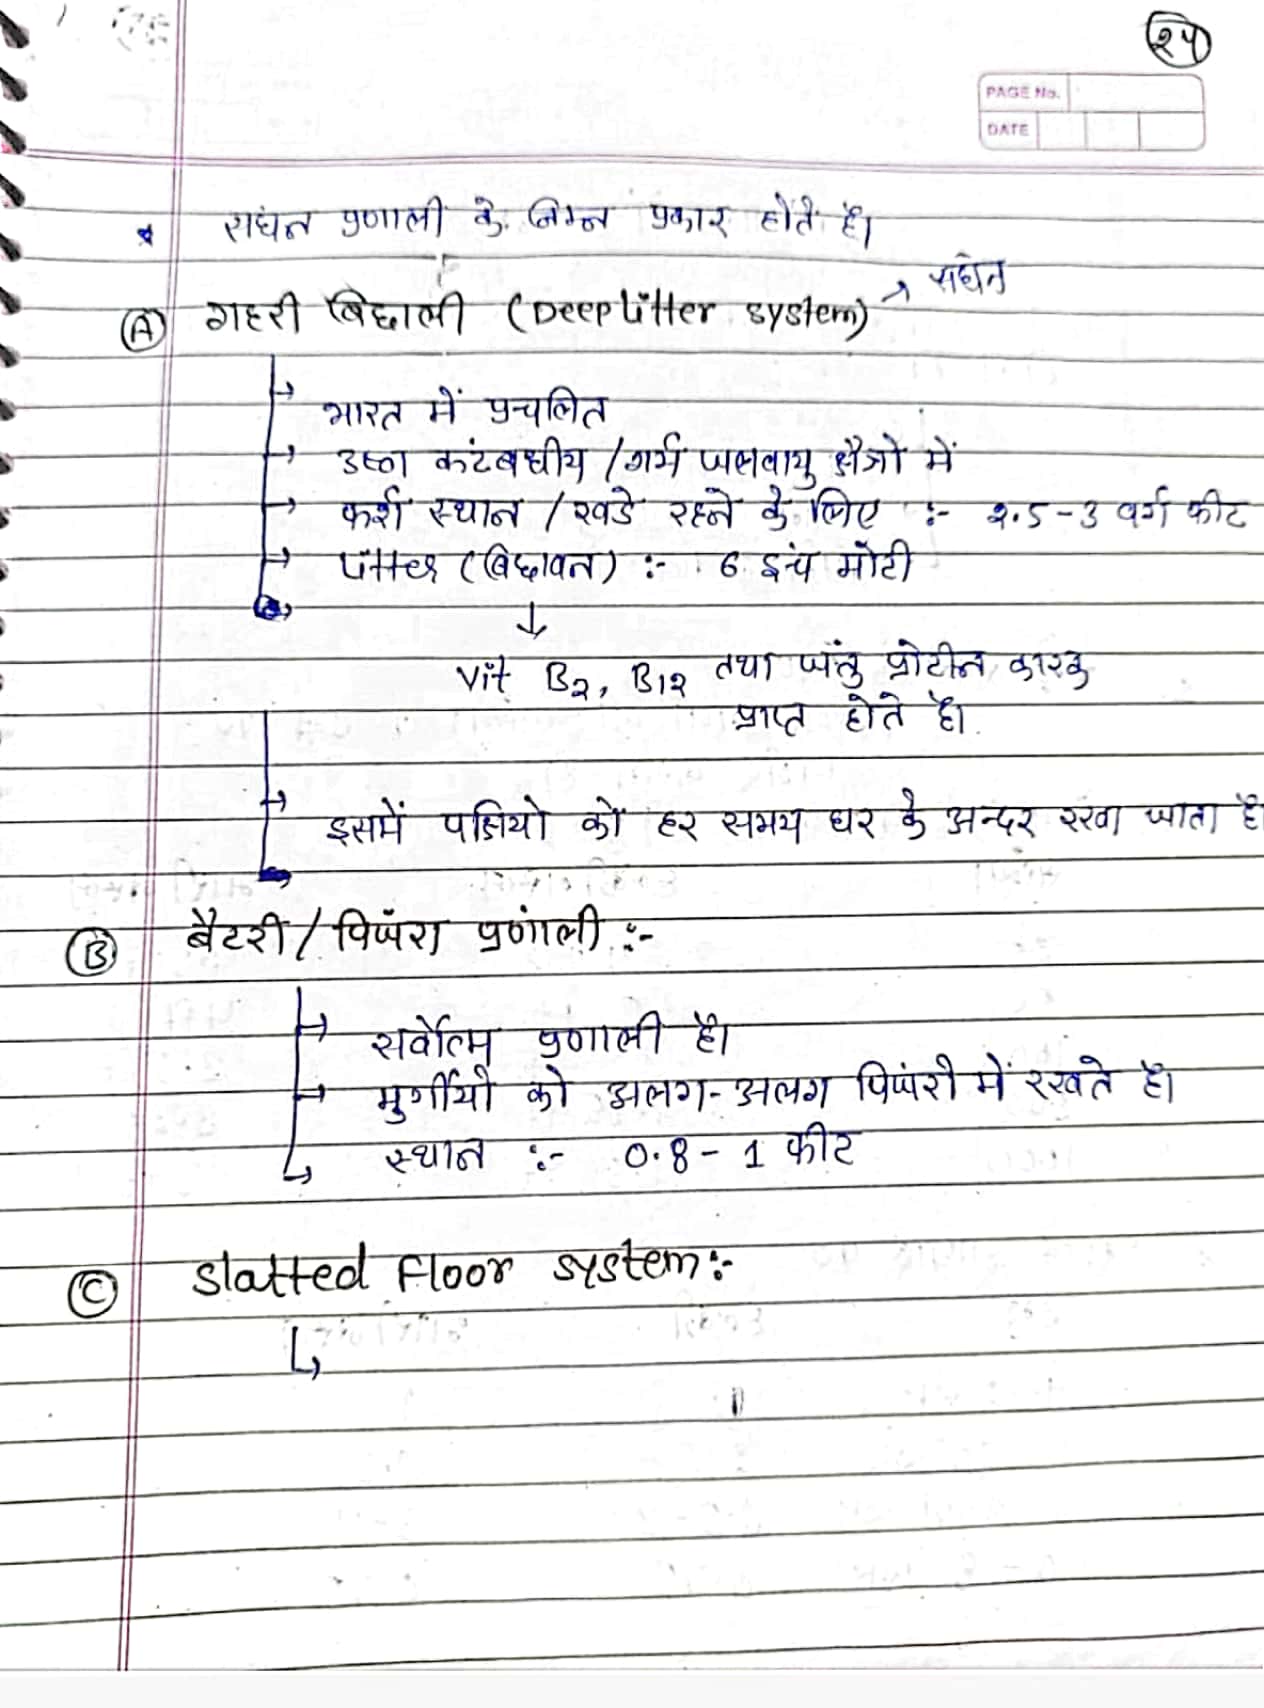 २५
PAGE No.
DATE
* सघन प्रणाली के निम्न प्रकार होते है।
(A) गहरी बिछाली (Deep Litter system) → सघन
→ भारत में प्रचलित
→ उष्ण कटंबधीय / गर्म जलवायु क्षैत्रो में
→ फर्श स्थान / खडे रहने के लिए :- 2.5-3 वर्ग फीट
→ Litter (बिछावन) :- 6 इंच मोटी
↓
Vit B2, B12 तथा जंतु प्रोटीन कारक
प्राप्त होते है।
→ इसमें पक्षियो को हर समय घर के अन्दर रखा जाता है
(B) बैटरी / पिंजरा प्रणाली :-
→ सर्वोत्म प्रणाली है।
→ मुर्गीयो को अलग-अलग पिंजरो में रखते है।
→ स्थान :- 0.8 - 1 फीट
(C) Slatted Floor System :-